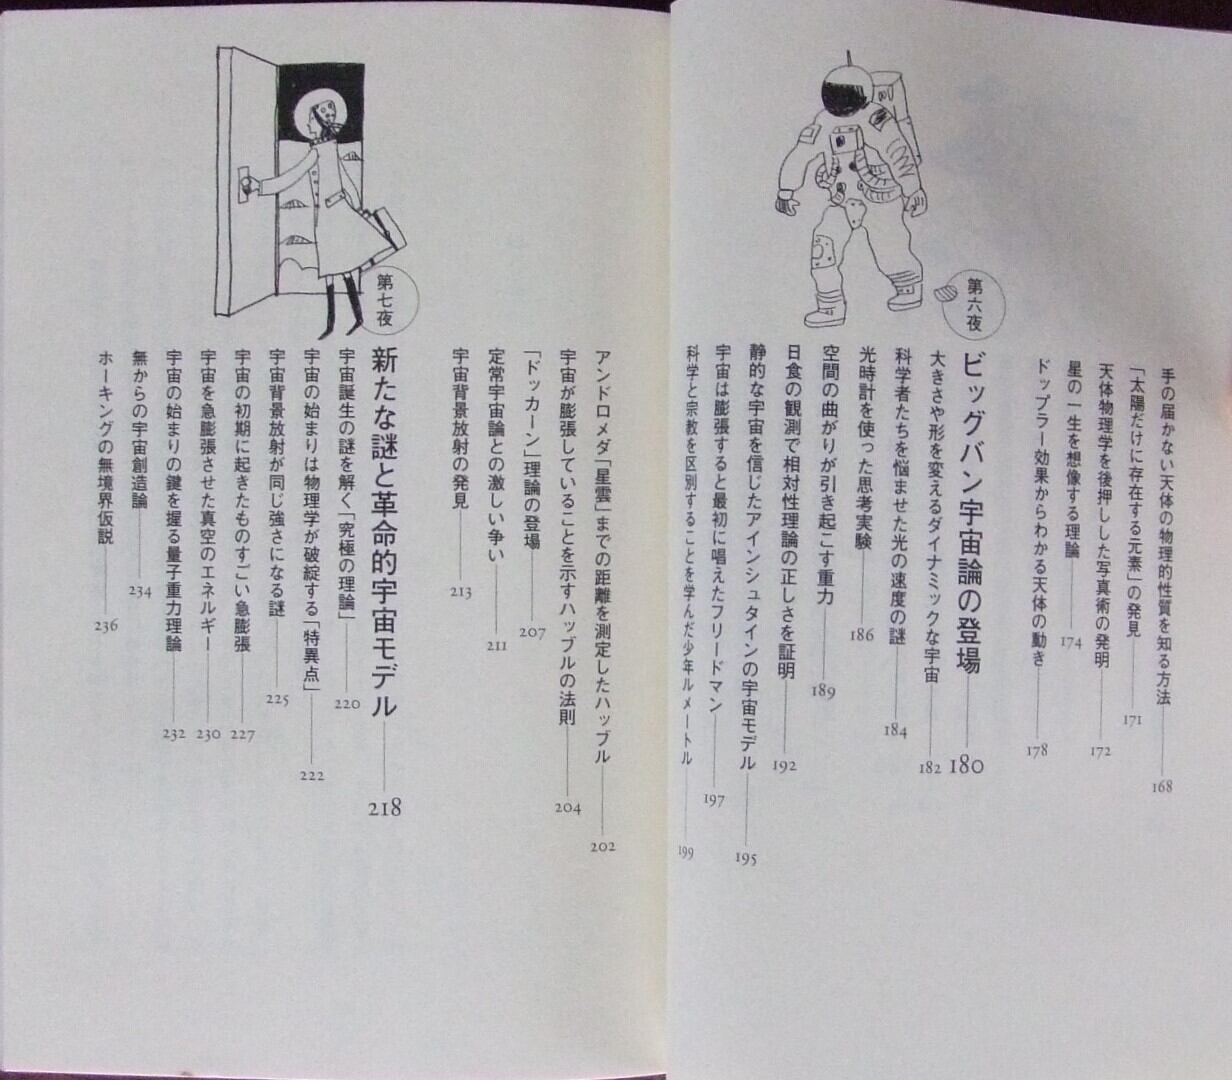 手の届かない天体の物理的性質を知る方法 168
「太陽だけに存在する元素」の発見 171
天体物理学を後押しした写真術の発明 172
星の一生を想像する理論 174
ドップラー効果からわかる天体の動き 178
第六夜
ビッグバン宇宙論の登場 180
大きさや形を変えるダイナミックな宇宙 182
科学者たちを悩ませた光の速度の謎 184
光時計を使った思考実験 186
空間の曲がりが引き起こす重力 189
日食の観測で相対性理論の正しさを証明 192
静的な宇宙を信じたアインシュタインの宇宙モデル 195
宇宙は膨張すると最初に唱えたフリードマン 197
科学と宗教を区別することを学んだ少年ルメートル 199
アンドロメダ「星雲」までの距離を測定したハッブル 202
宇宙が膨張していることを示すハッブルの法則 204
「ドッカーン」理論の登場 207
定常宇宙論との激しい争い 211
宇宙背景放射の発見 213
第七夜
新たな謎と革命的宇宙モデル 218
宇宙誕生の謎を解く「究極の理論」 220
宇宙の始まりは物理学が破綻する「特異点」 222
宇宙背景放射が同じ強さになる謎 225
宇宙の初期に起きたものすごい急膨張 227
宇宙を急膨張させた真空のエネルギー 230
宇宙の始まりの鍵を握る量子重力理論 232
無からの宇宙創造論 234
ホーキングの無境界仮説 236